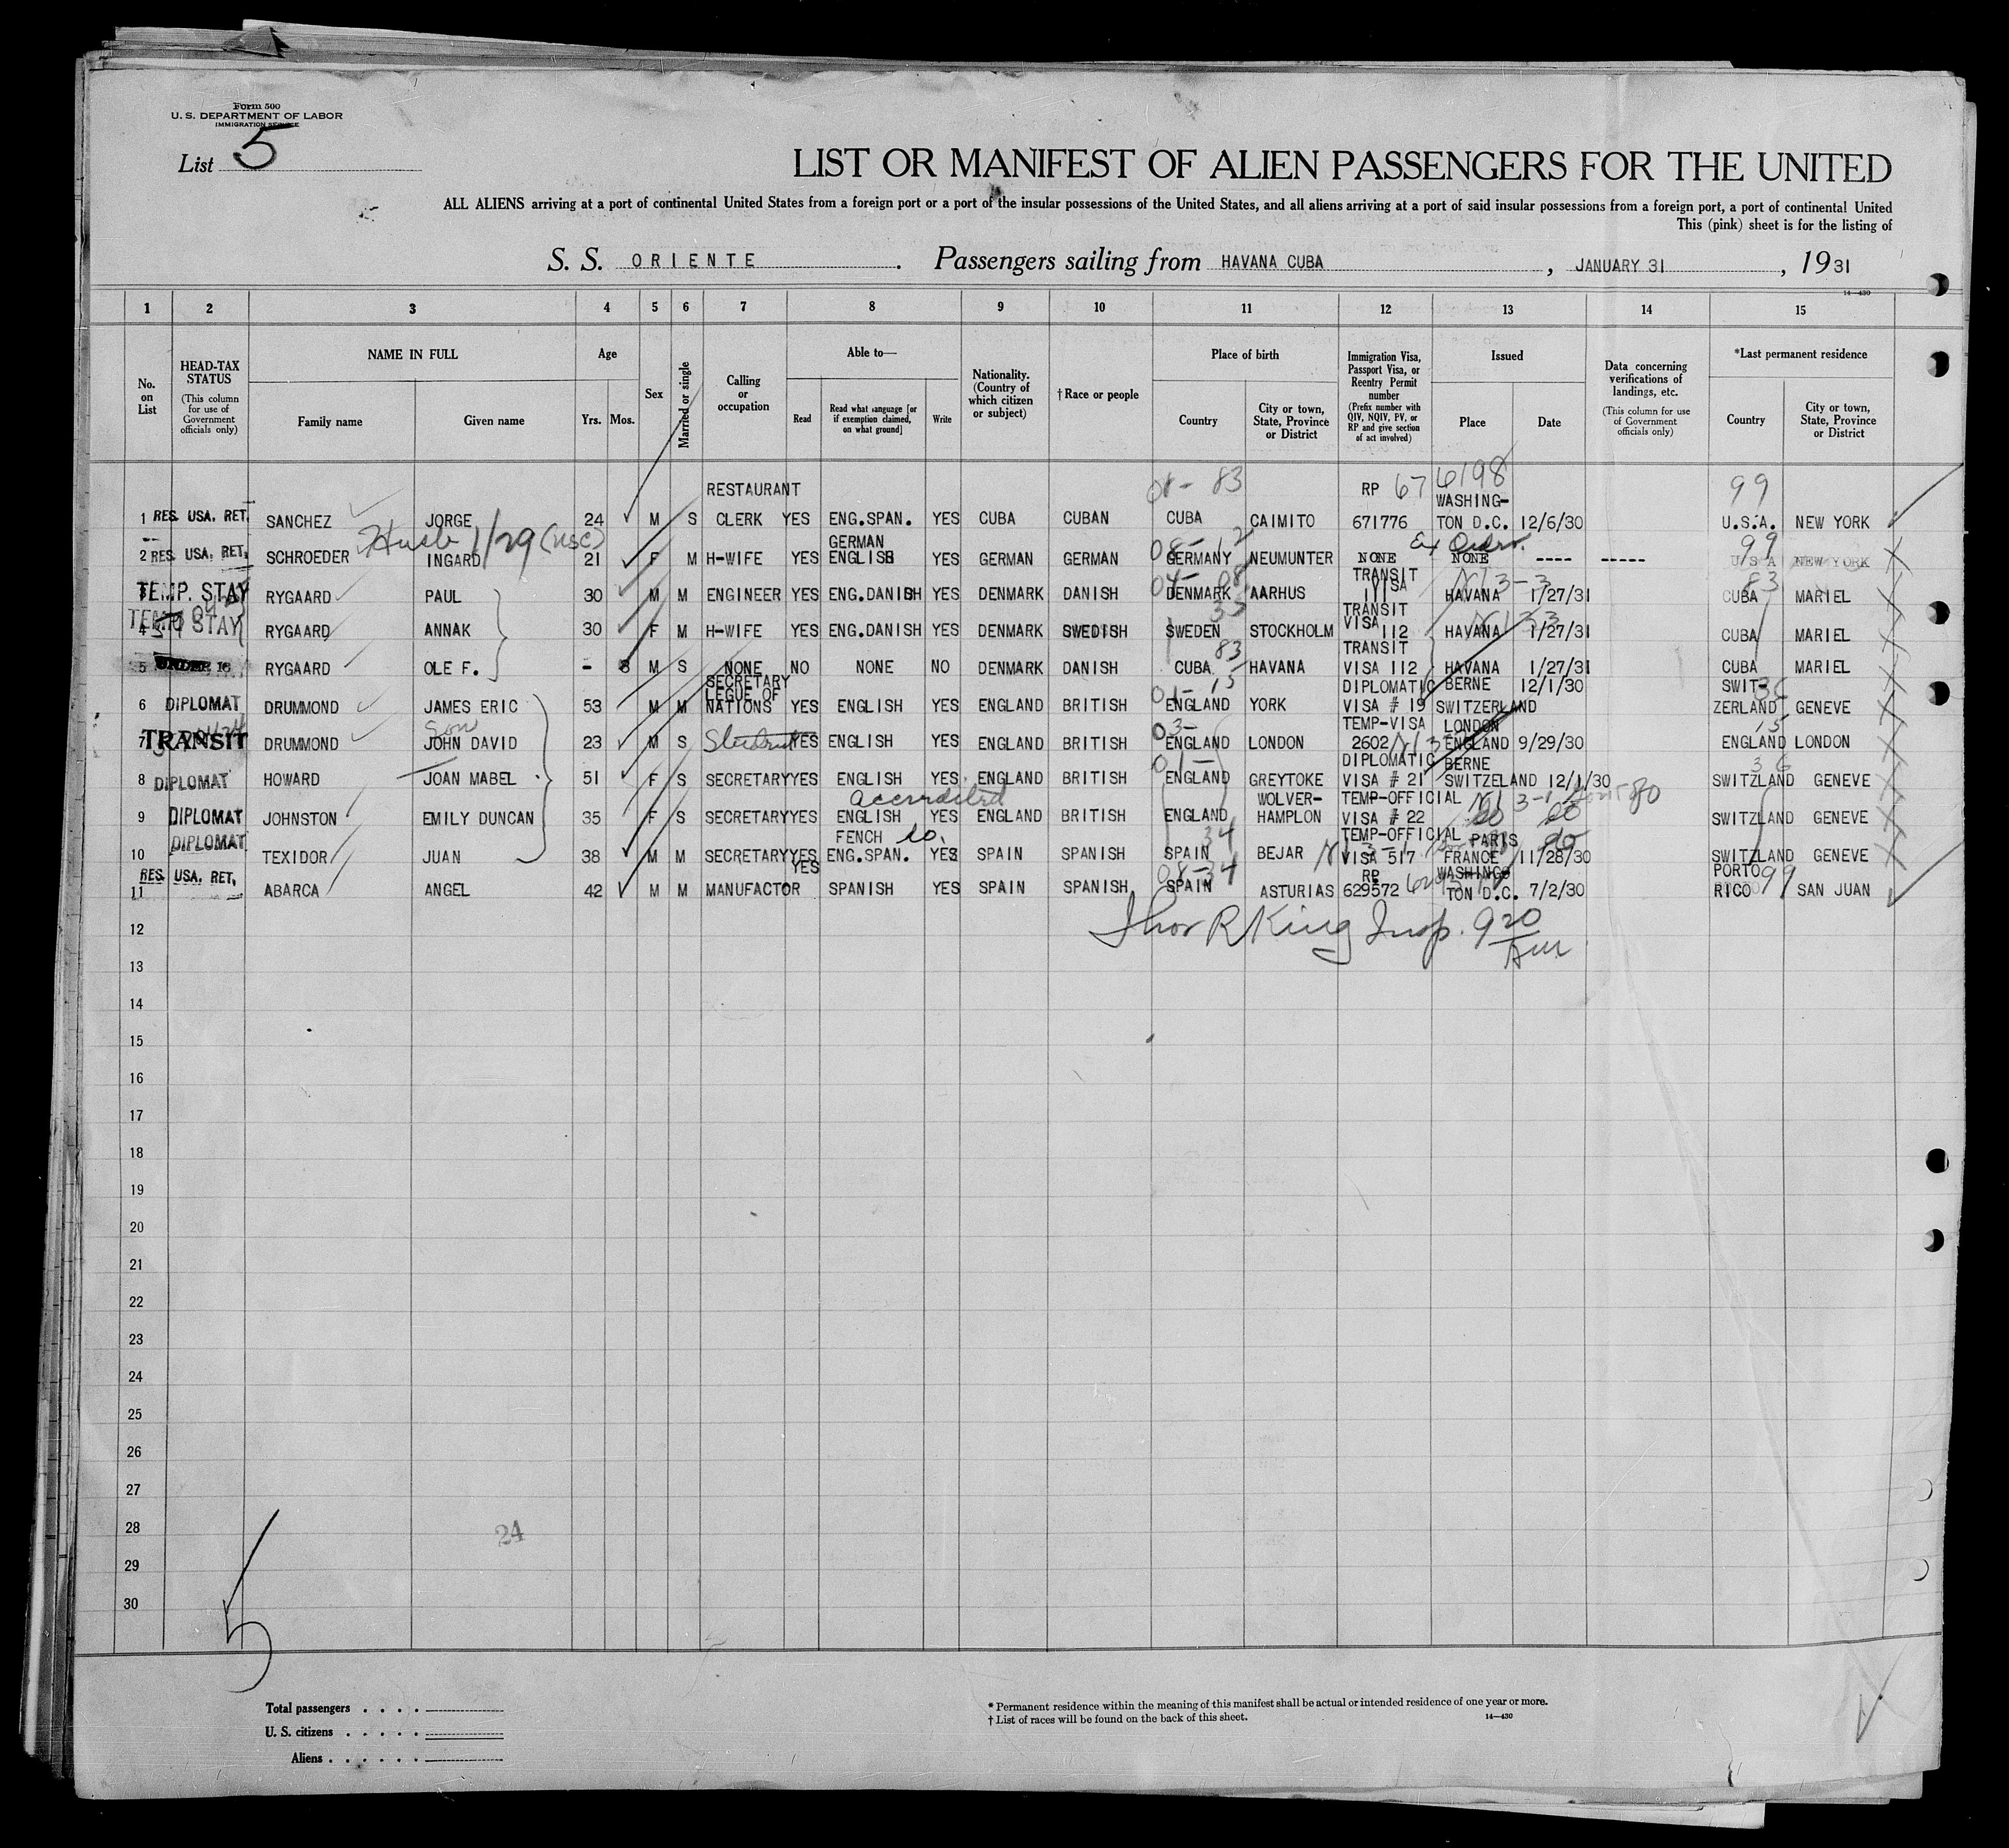 Form 500
U. S. DEPARTMENT OF LABOR
IMMIGRATION SERVICE
List 5
LIST OR MANIFEST OF ALIEN PASSENGERS FOR THE UNITED
ALL ALIENS arriving at a port of continental United States from a foreign port or a port of the insular possessions of the United States, and all aliens arriving at a port of said insular possessions from a foreign port, a port of continental United
This (pink) sheet is for the listing of
S. S. ORIENTE . Passengers sailing from HAVANA CUBA , JANUARY 31 , 19 31
14—430
1 2 3 4 5 6 7 8 9 10 11 12 13 14 15
No. on List
HEAD-TAX STATUS (This column for use of Government officials only)
NAME IN FULL Family name Given name
Age Yrs. Mos.
Sex
Married or single
Calling or occupation
Able to— Read Read what language [or if exemption claimed, on what ground] Write
Nationality. (Country of which citizen or subject)
† Race or people
Place of birth Country City or town, State, Province or District
Immigration Visa, Passport Visa, or Reentry Permit number (Prefix number with QIV, NQIV, PV, or RP and give section of act involved)
Issued Place Date
Data concerning verifications of landings, etc. (This column for use of Government officials only)
*Last permanent residence Country City or town, State, Province or District
1 RES. USA. RET. SANCHEZ JORGE 24 M S RESTAURANT CLERK YES ENG.SPAN. YES CUBA CUBAN 08- 83 CUBA CAIMITO RP 671776 67 6198 WASHING-TON D.C. 12/6/30 99 U.S.A. NEW YORK
2 RES. USA. RET. SCHROEDER Husb 1/29 (USC) INGARD 21 F M H-WIFE YES GERMAN ENGLISH YES GERMAN GERMAN 08-12 GERMANY NEUMUNTER NONE NONE ---- ----- 99 U S A NEW YORK
3 TEMP. STAY RYGAARD PAUL 30 M M ENGINEER YES ENG.DANISH YES DENMARK DANISH 04- 08 DENMARK AARHUS TRANSIT VISA 111 N 3-3 HAVANA 1/27/31 83 CUBA MARIEL
4 TEMP. STAY RYGAARD ANNAK 30 F M H-WIFE YES ENG.DANISH YES DENMARK SWEDISH 35 SWEDEN STOCKHOLM TRANSIT VISA 112 HAVANA 1/27/31 CUBA MARIEL
5 UNDER 16 RYGAARD OLE F. - 8 M S NONE NO NONE NO DENMARK DANISH 83 CUBA HAVANA TRANSIT VISA 112 HAVANA 1/27/31 CUBA MARIEL
6 DIPLOMAT DRUMMOND JAMES ERIC 53 M M SECRETARY LEGUE OF NATIONS YES ENGLISH YES ENGLAND BRITISH 01-15 ENGLAND YORK DIPLOMATIC VISA # 19 BERNE SWITZERLAND 12/1/30 36 SWIT-ZERLAND GENEVE
7 TRANSIT DRUMMOND Son JOHN DAVID 23 M S Student YES ENGLISH YES ENGLAND BRITISH 03- ENGLAND LONDON TEMP-VISA 2602 LONDON ENGLAND 9/29/30 15 ENGLAND LONDON
8 DIPLOMAT HOWARD JOAN MABEL 51 F S SECRETARY YES ENGLISH YES ENGLAND BRITISH 01- ENGLAND GREYTOKE DIPLOMATIC VISA # 21 BERNE SWITZELAND 12/1/30 36 SWITZLAND GENEVE
9 DIPLOMAT JOHNSTON EMILY DUNCAN 35 F S SECRETARY YES accredited ENGLISH YES ENGLAND BRITISH ENGLAND WOLVER-HAMPLON TEMP-OFFICIAL VISA # 22 do do SWITZLAND GENEVE
10 DIPLOMAT TEXIDOR JUAN 38 M M SECRETARY YES FENCH do. ENG.SPAN. YES SPAIN SPANISH 34 SPAIN BEJAR TEMP-OFFICIAL VISA 517 PARIS FRANCE do 11/28/30 SWITZLAND GENEVE
11 RES. USA. RET. ABARCA ANGEL 42 M M MANUFACTOR YES SPANISH YES SPAIN SPANISH 08-34 SPAIN ASTURIAS RP 629572 WASHINGTON D.C. 7/2/30 PORTO RICO 99 SAN JUAN
12 Thor R King Insp. 9 20 Am
13
14
15
16
17
18
19
20
21
22
23
24
25
26
27
28
24
29
30
5
Total passengers . . . .
U. S. citizens . . . . .
Aliens . . . . . .
* Permanent residence within the meaning of this manifest shall be actual or intended residence of one year or more.
† List of races will be found on the back of this sheet.
14—430